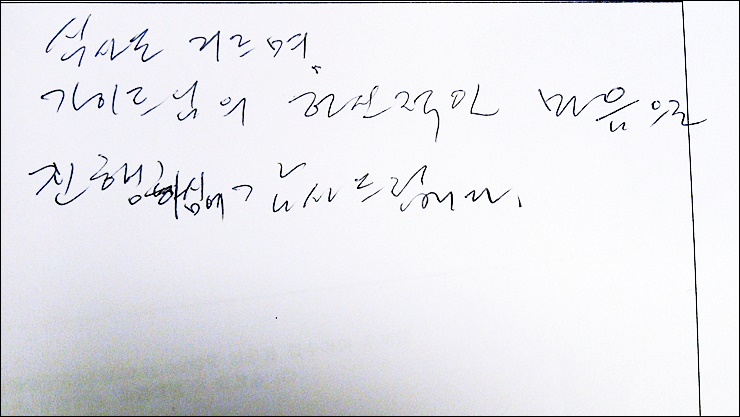 식사를 거르며,
가이드님의 헌신적인 마음으로
진행하심에 감사드립니다.